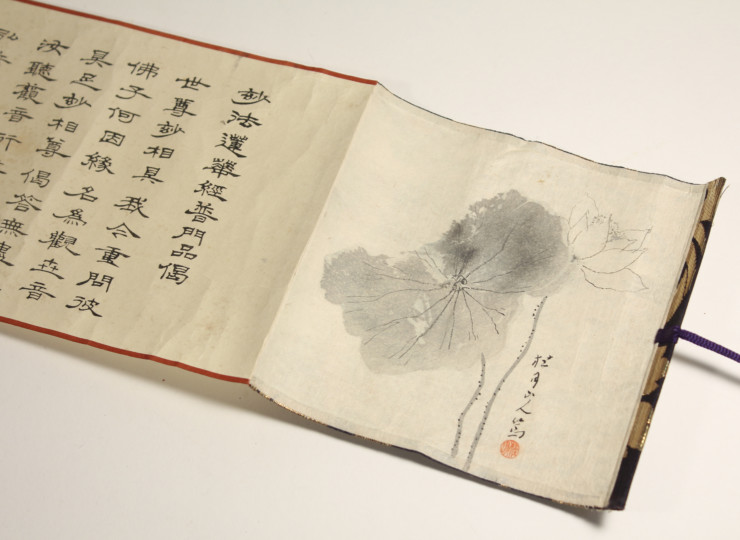 妙法蓮華經普門品偈
世尊妙相具 我今重問彼
佛子何因緣 名為觀世音
具足妙相尊 偈答無
汝聽觀音行
弘
桂月山人寫